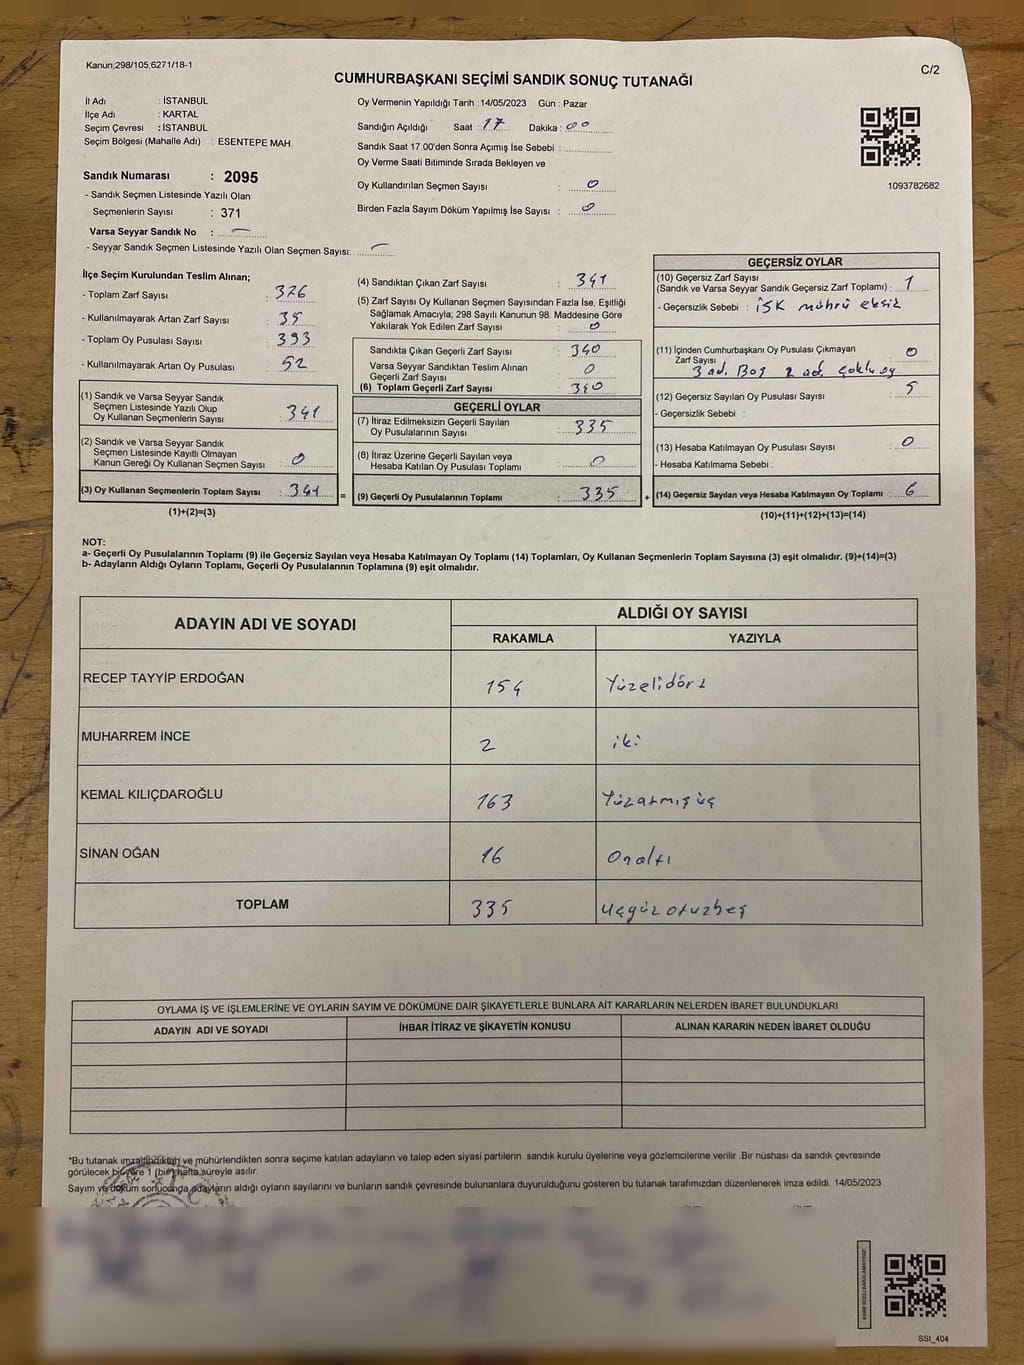 Kanun;298/105,6271/18-1
C/2
CUMHURBAŞKANI SEÇİMİ SANDIK SONUÇ TUTANAĞI
İl Adı : İSTANBUL
İlçe Adı : KARTAL
Seçim Çevresi : İSTANBUL
Seçim Bölgesi (Mahalle Adı) : ESENTEPE MAH.
Sandık Numarası : 2095
- Sandık Seçmen Listesinde Yazılı Olan
Seçmenlerin Sayısı : 371
Varsa Seyyar Sandık No : —
- Seyyar Sandık Seçmen Listesinde Yazılı Olan Seçmen Sayısı:
Oy Vermenin Yapıldığı Tarih :14/05/2023 Gün : Pazar
Sandığın Açıldığı Saat : 17 Dakika : 00
Sandık Saat 17:00'den Sonra Açımış İse Sebebi :
Oy Verme Saati Bitiminde Sırada Bekleyen ve
Oy Kullandırılan Seçmen Sayısı : 0
Birden Fazla Sayım Döküm Yapılmış İse Sayısı : 0
1093782682
İlçe Seçim Kurulundan Teslim Alınan;
- Toplam Zarf Sayısı : 376
- Kullanılmayarak Artan Zarf Sayısı : 35
- Toplam Oy Pusulası Sayısı : 393
- Kullanılmayarak Artan Oy Pusulası : 52
(1) Sandık ve Varsa Seyyar Sandık
Seçmen Listesinde Yazılı Olup
Oy Kullanan Seçmenlerin Sayısı : 341
(2) Sandık ve Varsa Seyyar Sandık
Seçmen Listesinde Kayıtlı Olmayan
Kanun Gereği Oy Kullanan Seçmen Sayısı : 0
(3) Oy Kullanan Seçmenlerin Toplam Sayısı : 341
(1)+(2)=(3)
=
(4) Sandıktan Çıkan Zarf Sayısı : 341
(5) Zarf Sayısı Oy Kullanan Seçmen Sayısından Fazla İse, Eşitliği
Sağlamak Amacıyla; 298 Sayılı Kanunun 98. Maddesine Göre
Yakılarak Yok Edilen Zarf Sayısı : 0
Sandıkta Çıkan Geçerli Zarf Sayısı : 340
Varsa Seyyar Sandıktan Teslim Alınan
Geçerli Zarf Sayısı : 0
(6) Toplam Geçerli Zarf Sayısı : 340
GEÇERLİ OYLAR
(7) İtiraz Edilmeksizin Geçerli Sayılan
Oy Pusulalarının Sayısı : 335
(8) İtiraz Üzerine Geçerli Sayılan veya
Hesaba Katılan Oy Pusulası Toplamı : 0
(9) Geçerli Oy Pusulalarının Toplamı : 335
+
GEÇERSİZ OYLAR
(10) Geçersiz Zarf Sayısı
(Sandık ve Varsa Seyyar Sandık Geçersiz Zarf Toplamı) : 1
- Geçersizlik Sebebi : İSK mührü eksik
(11) İçinden Cumhurbaşkanı Oy Pusulası Çıkmayan
Zarf Sayısı : 0
3 ad. Boş 2 ad. çoklu oy
(12) Geçersiz Sayılan Oy Pusulası Sayısı : 5
- Geçersizlik Sebebi :
(13) Hesaba Katılmayan Oy Pusulası Sayısı : 0
- Hesaba Katılmama Sebebi :
(14) Geçersiz Sayılan veya Hesaba Katılmayan Oy Toplamı : 6
(10)+(11)+(12)+(13)=(14)
NOT:
a- Geçerli Oy Pusulalarının Toplamı (9) ile Geçersiz Sayılan veya Hesaba Katılmayan Oy Toplamı (14) Toplamları, Oy Kullanan Seçmenlerin Toplam Sayısına (3) eşit olmalıdır. (9)+(14)=(3)
b- Adayların Aldığı Oyların Toplamı, Geçerli Oy Pusulalarının Toplamına (9) eşit olmalıdır.
ADAYIN ADI VE SOYADI
ALDIĞI OY SAYISI
RAKAMLA YAZIYLA
RECEP TAYYİP ERDOĞAN 154 Yüzelidört
MUHARREM İNCE 2 iki
KEMAL KILIÇDAROĞLU 163 Yüzatmışüç
SİNAN OĞAN 16 Onaltı
TOPLAM 335 üçyüzotuzbeş
OYLAMA İŞ VE İŞLEMLERİNE VE OYLARIN SAYIM VE DÖKÜMÜNE DAİR ŞİKAYETLERLE BUNLARA AİT KARARLARIN NELERDEN İBARET BULUNDUKLARI
ADAYIN ADI VE SOYADI İHBAR İTİRAZ VE ŞİKAYETİN KONUSU ALINAN KARARIN NEDEN İBARET OLDUĞU
*Bu tutanak imzalandıktan ve mühürlendikten sonra seçime katılan adayların ve talep eden siyasi partilerin sandık kurulu üyelerine veya gözlemcilerine verilir .Bir nüshası da sandık çevresinde
görülecek bir yere 1 (bir) hafta süreyle asılır.
Sayım ve döküm sonucunda adayların aldığı oyların sayılarını ve bunların sandık çevresinde bulunanlara duyurulduğunu gösteren bu tutanak tarafımızdan düzenlenerek imza edildi. 14/05/2023
KARE KODU KARALAMAYINIZ!
SSI_404